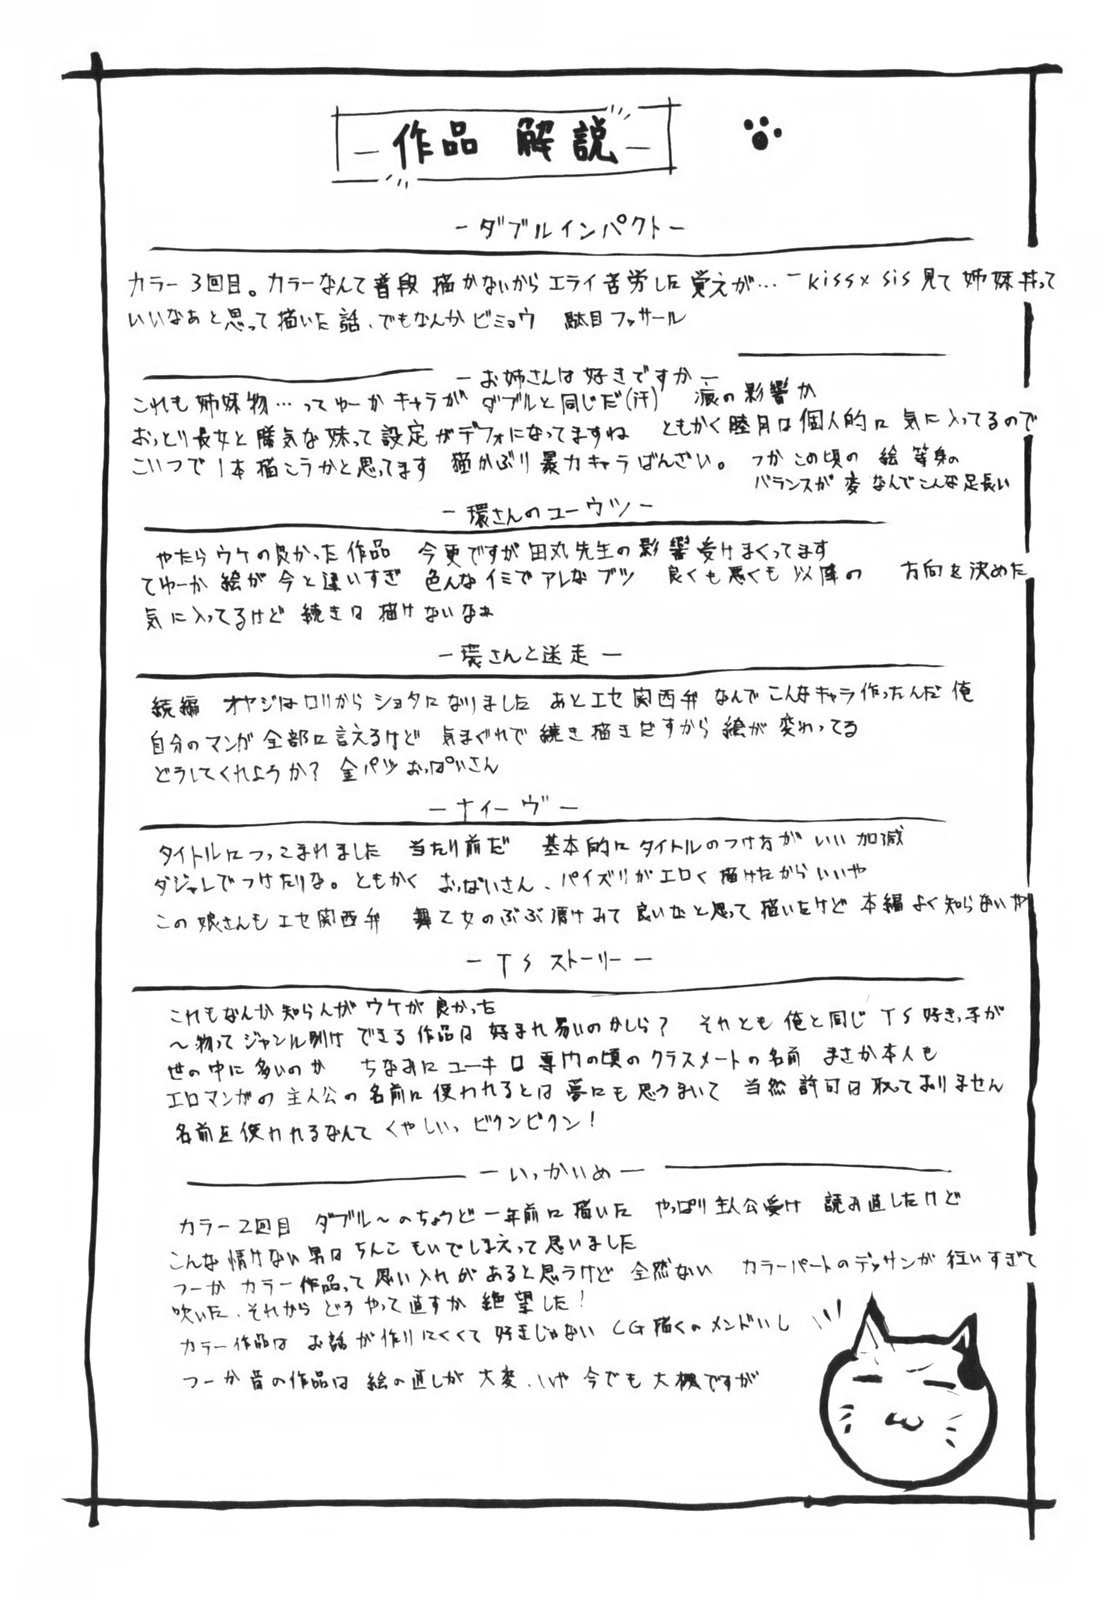 作品 解説
ーダブルインパクトー
カラー3回目。カラーなんて普段 描かないから エライ苦労した覚えが… ーkiss×sis見て 姉妹丼って
いいなぁと思って描いた話、でもなんか ビミョウ 駄目ファサール
ーお姉さんは好きですかー
これも 姉妹物…ってゆーか キャラが ダブルと同じだ(汗) 痕の影響か
おっとり長女と勝気な妹って設定がデフォになってますね ともかく睦月は個人的に 気に入ってるので
こいつで1本描こうかと思ってます 猫かぶり暴力キャラばんざい。 つか この頃の 絵 等身の
バランスが 変 なんでこんな足長い
ー環さんのユーウツー
やたら ウケの良かった作品 今更ですが 田丸先生の影響受けまくってます
てゆーか 絵が今と違いすぎ 色んなイミで アレなブツ 良くも悪くも 以降の 方向を決めた
気に入ってるけど 続きは 描けないなぁ
ー環さんと迷走ー
続編 オヤジはロリから ショタになりました あとエセ関西弁 なんで こんなキャラ作ったんだ俺
自分のマンガ全部に言えるけど 気まぐれで 続き描きだすから 絵が 変わってる
どうしてくれようか? 金パツおっぱいさん
ーナイーヴー
タイトルにつっこまれました 当たり前だ 基本的にタイトルのつけ方が いい加減
ダジャレでつけたりな。ともかく おっぱいさん、パイズリがエロく描けたからいいや
この娘さんもエセ関西弁 舞乙女のぶぶ漬けみて良いなと思って描いたけど 本編よく知らないや
ーTSストーリーー
これもなんか知らんが ウケが良かった
～物って ジャンル別け できる作品は 好まれ易いのかしら? それとも 俺と同じ TS好きっ子が
世の中に多いのか ちなみに ユーキは 専門の頃の クラスメートの名前 まさか本人も
エロマンガの 主人公の名前に使われるとは 夢にも思うまいて 当然 許可は取っておりません
名前を使われるなんて くやしいっ ビクンビクン!
ーいっかいめー
カラー2回目 ダブル～のちょうど一年前に描いた やっぱり主人公受け 読み直したけど
こんな情けない男は ちんこ もいでしまえって思いました
つーか カラー作品って 思い入れが あると思うけど 全然ない カラーパートのデッサンが 狂いすぎて
吹いた、それから どうやって直すか 絶望した!
カラー作品は お話が 作りにくくて 好きじゃない CG描くのメンドいし
つーか 昔の作品は 絵の直しが 大変、いや 今でも 大概ですが